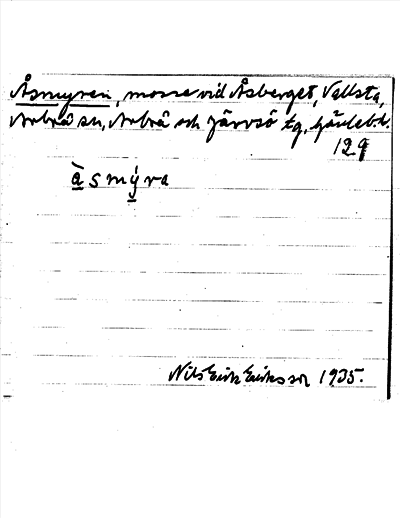 Åsmyren, mosse vid Åsberget, Vallsta,
Arbrå sn, Arbrå och Järvsö tg, Gävlebd.
129
åsmýra
Nils Erik Eriksson 1935.